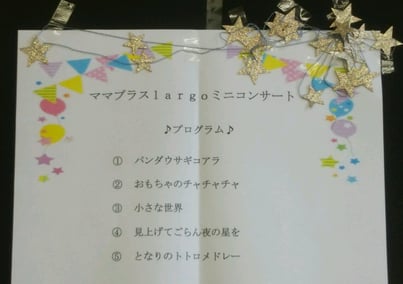 ママブラスlargoミニコンサート
♪プログラム♪
① パンダウサギコアラ
② おもちゃのチャチャチャ
③ 小さな世界
④ 見上げてごらん夜の星を
⑤ となりのトトロメドレー